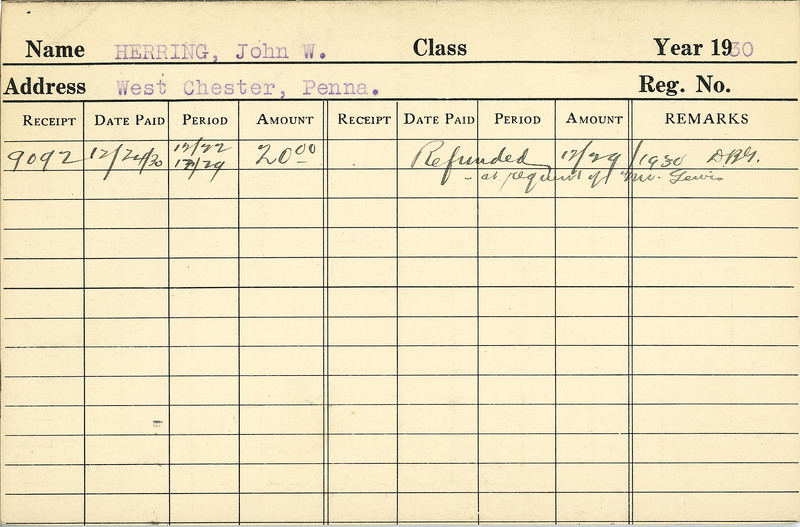 Name HERRING, John W. Class Year 1930
Address West Chester, Penna. Reg. No.
RECEIPT DATE PAID PERIOD AMOUNT RECEIPT DATE PAID PERIOD AMOUNT REMARKS
9092 12/24/30 12/22 20.00 Refunded 12/29/1930
12/29
- at request of Mr. Lewis